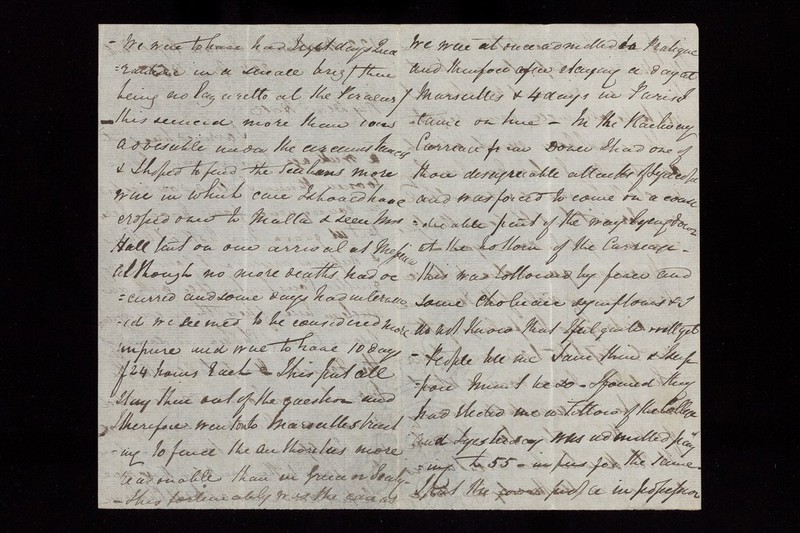 - We were to have had eight days Qua
=rantine in a small brig there
being no Lazaretto at the Piraeus
this seemed more than
advisable under the circumstances
& I hoped to find the Sicilians more
in which case I should have
crossed over to Malta & seen Mrs
Hall but on our arrival at Messina
although no more deaths had oc
=curred and some days had interven
=ed we seemed to be considered more
impure and were to have 10 days
of 24 hours each - This put all
stay there out of the question and
therefore went on to Marseilles trust
=ing to find the authorities more
reasonable than in Greece or Italy -
- This fortunately was the case as
We were at once admitted to Pratique
and therefore after staying a day at
Marseilles & 4 days in Paris I
came on here - In the Railway
Carriage from Dover I had one of
those disagreeable attacks of
and was forced to come on a consi
=derable part of the way lying down
at the bottom of the Carriage -
this was followed by fever and
some choleraic symptoms & I
do not know that I feel quite well yet
- People tell me I am thin & I sup
=pose I must be so - I found they
had elected me a Fellow of the College
and I yesterday was admitted pay
=ing £ 55 - in fees for the same